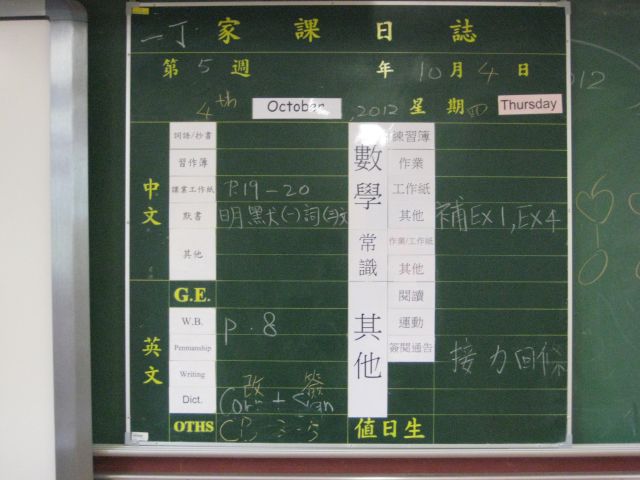 一丁 家課日誌
第 5 週 年 10 月 4 日
4th October, 2012 星期四 Thursday
中文
詞語/抄書
習作簿
課業工作紙 P.19-20
默書
其他
英文
G.E.
W.B. p.8
Penmanship
Writing
Dict. 改 簽
Corr. + Sign
OTHS
數學
練習簿
作業
工作紙
其他 補EX1,EX4
常識
作業/工作紙
其他
其他
閱讀
運動
簽閱通告 接力回條
值日生
2012